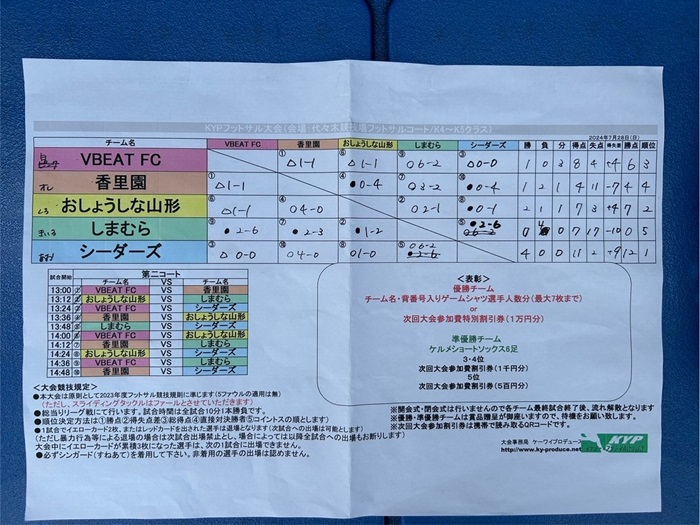 KYPフットサル大会(会場:代々木競技場フットサルコート/K4～K5クラス)
2024年7月28日(日)
チーム名 VBEAT FC 香里園 おしょうしな山形 しまむら シーダーズ 勝 負 分 得点 失点 得失差 勝点 順位
VBEAT FC ①△1-1 ⑥△1-1 ⑨○6-2 ③△0-0 1 0 3 8 4 +4 6 3
香里園 ①△1-1 ④●0-4 ⑦○3-2 ⑩●0-4 1 2 1 4 11 -7 4 4
おしょうしな山形 ⑥△1-1 ④○4-0 ②○2-1 ⑧●0-1 2 1 1 7 3 +4 7 2
しまむら ⑨●2-6 ⑦●2-3 ②●1-2 ⑤●2-6 0 4 0 7 17 -10 0 5
シーダーズ ③△0-0 ⑩○4-0 ⑧○1-0 ⑤○6-2
第二コート
試合開始 チーム名 VS チーム名
13:00 ① VBEAT FC VS 香里園
13:12 ② おしょうしな山形 VS しまむら
13:24 ③ VBEAT FC VS シーダーズ
13:36 ④ 香里園 VS おしょうしな山形
13:48 ⑤ しまむら VS シーダーズ
14:00 ⑥ VBEAT FC VS おしょうしな山形
14:12 ⑦ 香里園 VS しまむら
14:24 ⑧ おしょうしな山形 VS シーダーズ
14:36 ⑨ VBEAT FC VS しまむら
14:48 ⑩ 香里園 VS シーダーズ
<表彰>
優勝チーム
チーム名・背番号入りゲームシャツ選手人数分(最大7枚まで)
or
次回大会参加費特別割引券(1万円分)
準優勝チーム
ケルメショートソックス6足
3・4位
次回大会参加費割引券(1千円分)
5位
次回大会参加費割引券(5百円分)
<大会競技規定>
●本大会は原則として2023年度フットサル競技規則に準じます(5ファウルの適用は無)
(ただし、スライディングタックルはファールとさせていただきます)
●総当りリーグ戦にて行います。試合時間は全試合10分1本勝負です。
●順位決定方法は①勝点②得失点差③総得点④直接対決勝者⑤コイントスの順とします)
●1試合でイエローカード2枚、またはレッドカードを出された選手は退場となります(次試合への出場は可能とします)
(ただし暴力行為等による退場の場合は次試合出場禁止とし、場合によっては以降全試合への出場もお断りします)
大会中にイエローカードが累積3枚になった選手は、次の1試合に出場できません。
●必ずシンガード(すねあて)を着用して下さい。非着用の選手の出場は認めません。
※開会式・閉会式は行いませんので各チーム最終試合終了後、流れ解散となります
※優勝・準優勝チームは賞品贈呈が御座いますので、待機をお願い致します。
※次回大会参加割引券は携帯で読み取るQRコードです。
大会事務局 ケーワイプロデュース
http://www.ky-produce.net
KYP